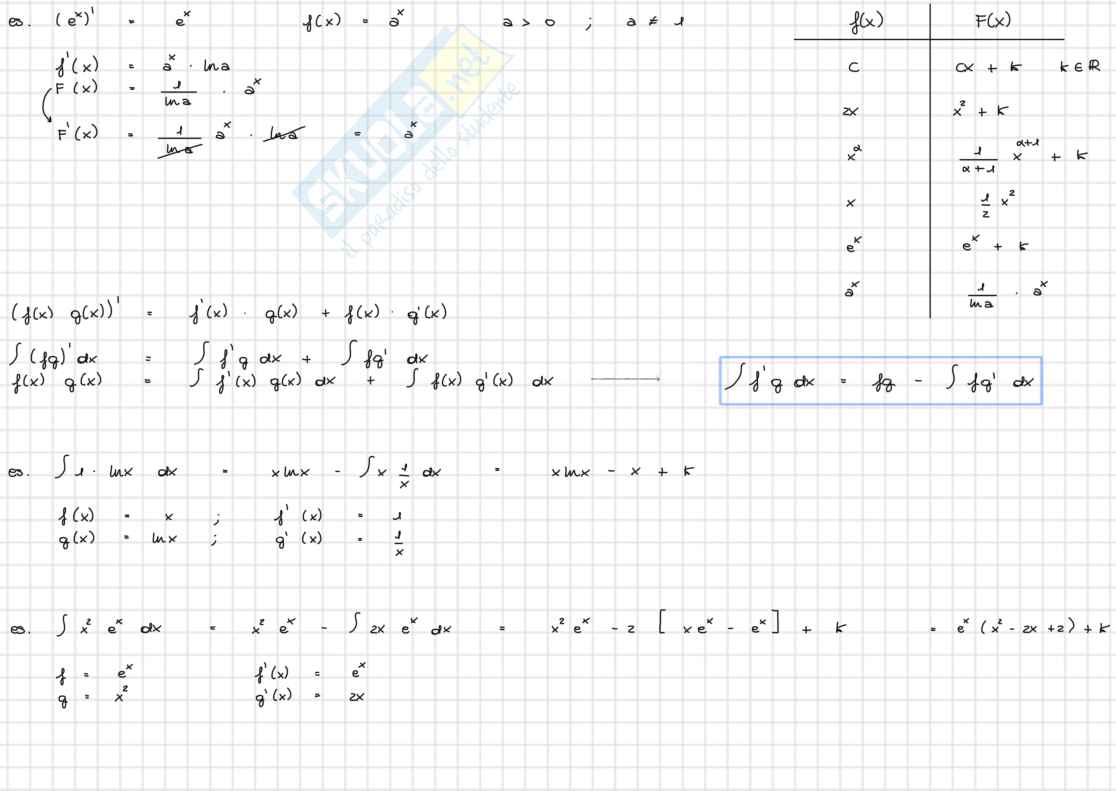 es. (eˣ)' = eˣ f(x) = aˣ a > 0 ; a ≠ 1
f'(x) = aˣ · ln a
F(x) = 1/ln a · aˣ
F'(x) = 1/ln a aˣ · ln a = aˣ
f(x) F(x)
c cx + k k ∈ ℝ
2x x² + k
x^α 1/(α+1) x^(α+1) + k
x 1/2 x²
eˣ eˣ + k
aˣ 1/ln a · aˣ
SKUOLA.net
il paradiso dello studente
(f(x) g(x))' = f'(x) · g(x) + f(x) · g'(x)
∫ (fg)' dx = ∫ f'g dx + ∫ fg' dx
f(x) g(x) = ∫ f'(x) g(x) dx + ∫ f(x) g'(x) dx → ∫ f'g dx = fg - ∫ fg' dx
es. ∫ 1 · ln x dx = x ln x - ∫ x 1/x dx = x ln x - x + k
f(x) = x ; f'(x) = 1
g(x) = ln x ; g'(x) = 1/x
es. ∫ x² eˣ dx = x² eˣ - ∫ 2x eˣ dx = x² eˣ - 2 [ x eˣ - eˣ ] + k = eˣ (x² - 2x + 2) + k
f = eˣ f'(x) = eˣ
g = x² g'(x) = 2x